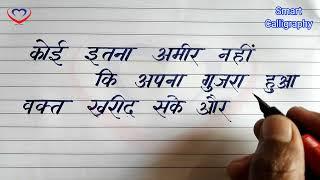 Smart
Calligraphy
कोई इतना अमीर नहीं
कि अपना गुजरा हुआ
वक्त खरीद सके और